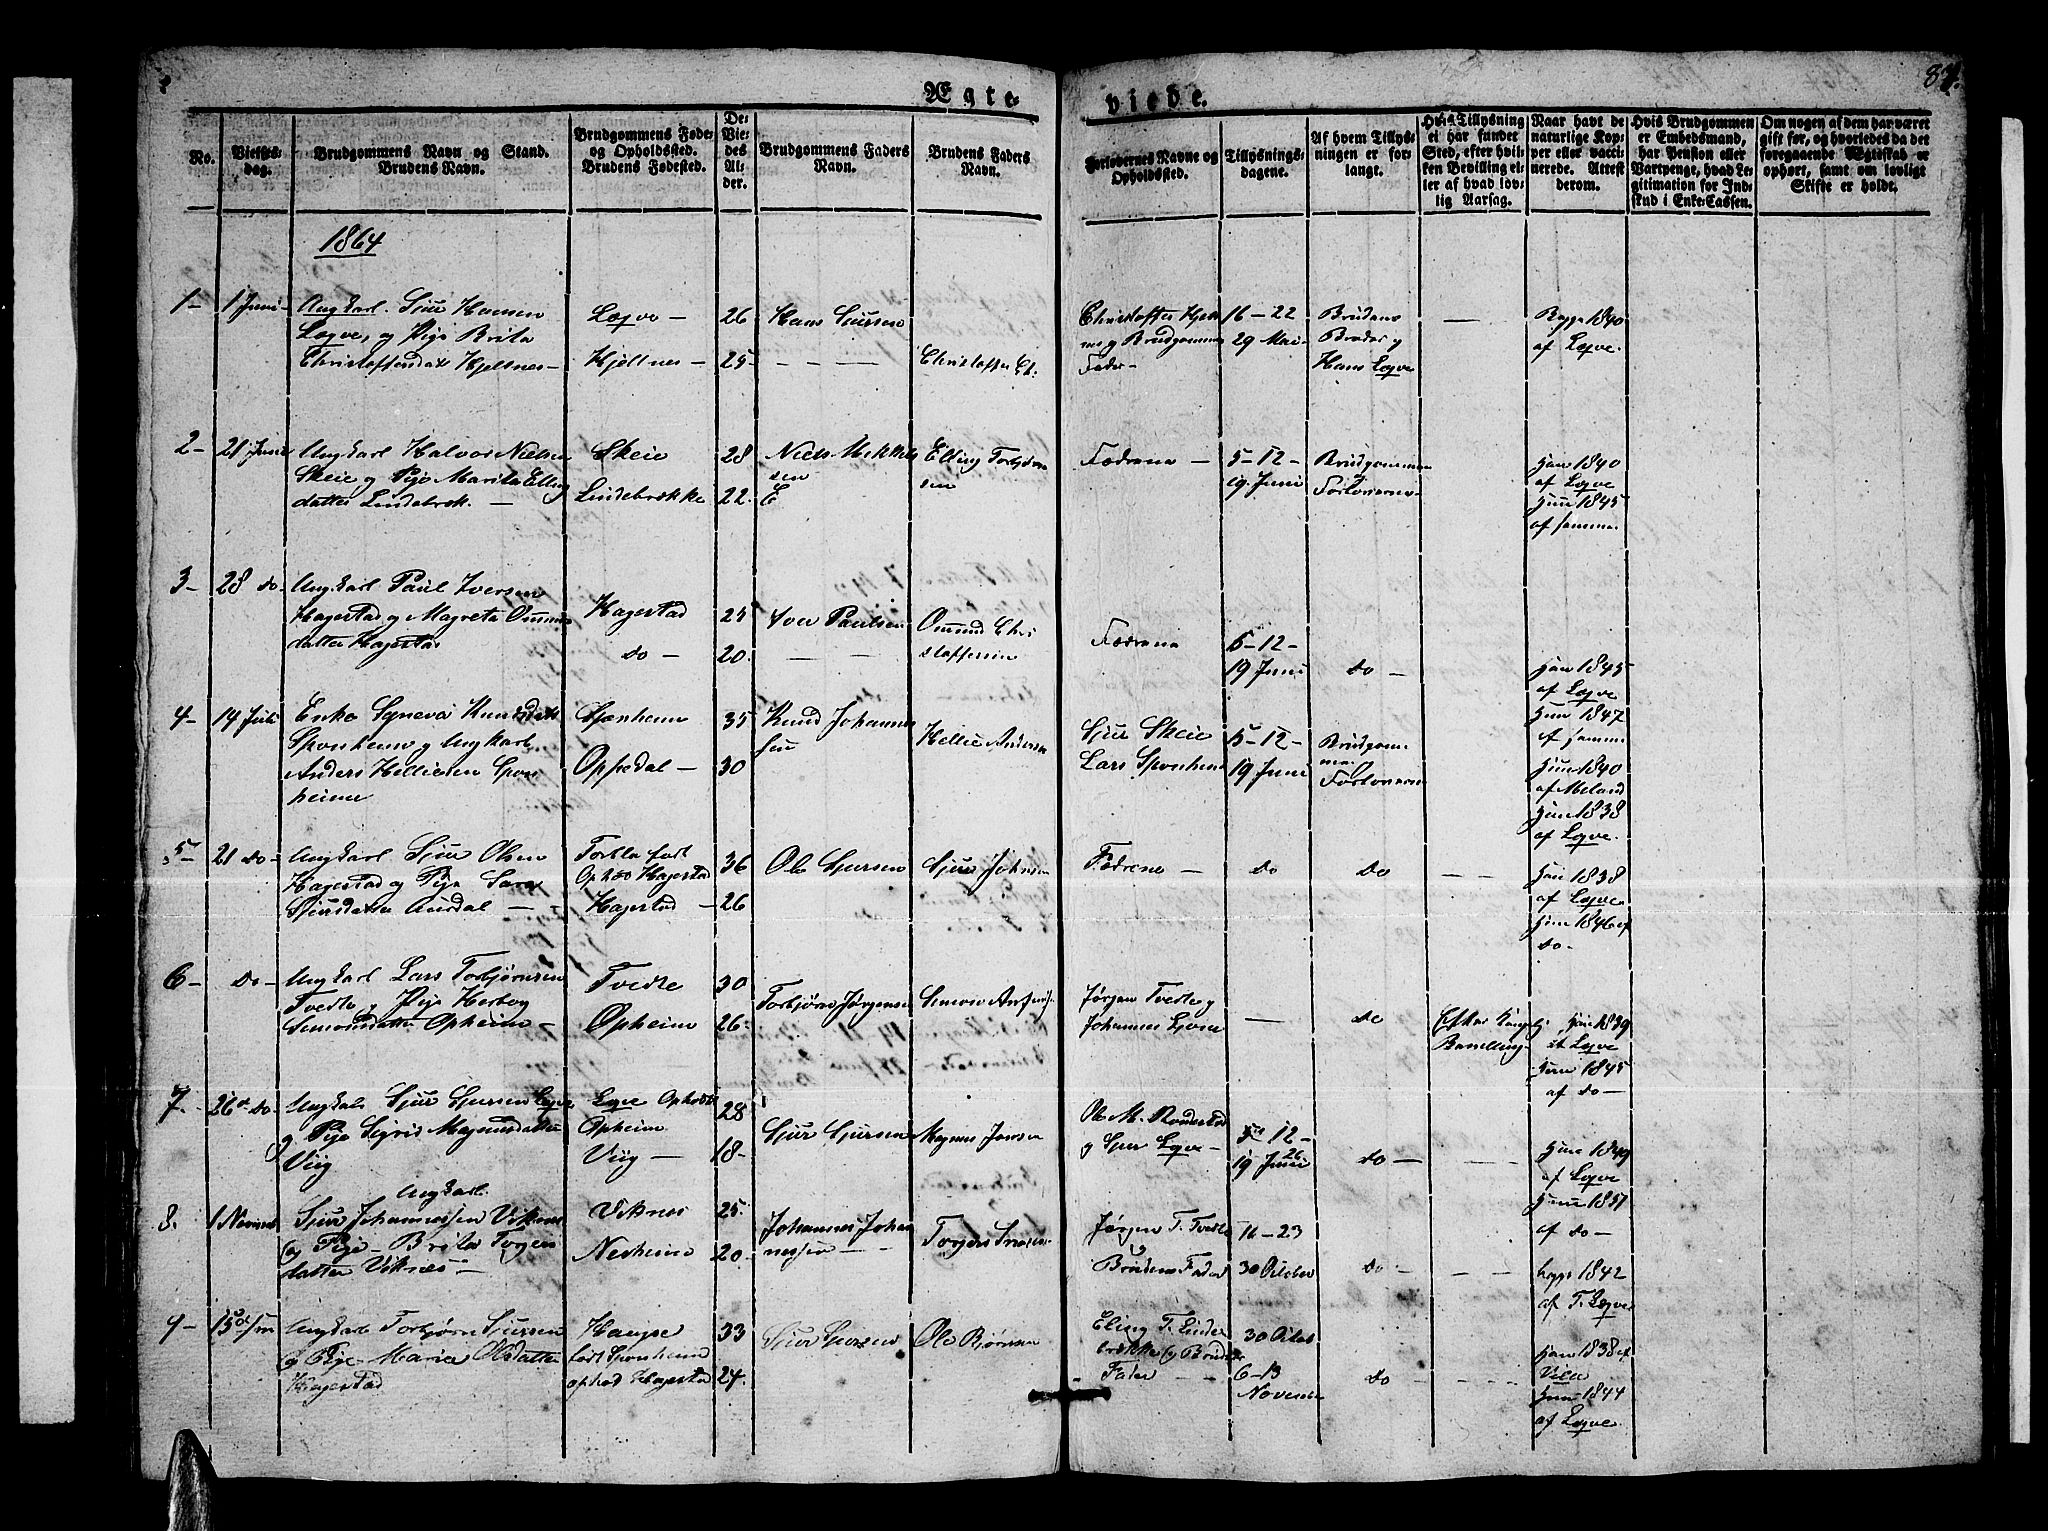 Ægte-
viede.
87.
No.
Vielses-
dag.
Brudgommens Navn og Stand.
Brudens Navn.
Brudgommens Føde-
og Opholdssted.
Brudens Fødested.
De
Vie-
des
Al-
der.
Brudgommens Faders
Navn.
Brudens Faders
Navn.
Forlovernes Navne og
Opholdssted.
Tillysnings-
dagene.
Af hvem Tillys-
ningen er for-
langt.
Hvis Tillysning
ei har fundet
Sted, efter hvil-
ken Bevilling el-
ler af hvad lov-
lig Aarsag.
Naar havt de
naturlige Kop-
per eller vacci-
nerede. Attest
derom.
Hvis Brudgommen
er Embedsmand,
har Pension eller
Vartpenge, hvad Le-
gitimation for Ind-
skud i Enke-Cassen.
Om nogen af dem har været
gift før, og hvorledes da det
foregaaende Ægteskab er
ophørt, samt om lovligt
Skifte er holdt.
1864
1- 1 Juni- Ungkarl. Sjur Hansen
Løqve, og Pige Brita
Christoffersdatt Hjeltnes-
Løqve - 26 Hans Sjursen
Hjeltnes - 25- - - - Christoffer Ch:
Christoffer Hjelt
nes og Brudgommens
Fader-
16-22
29 Mai-
Brudens
Broder og
Hans Løqve
-
1840
af Løqve.
2- 21 Juni Ungkarl Halvor Nielsen
Skeie og Pige Marita Elling
datter Lindebrek. -
Skeie 28 Niels Mikkel
sen
Lindebrekke 22. E
Elling Torbjørn
sen
Fædrene -
5-12-
19. Juni
Brudgommen
Forloverne
Jan 1840
af Løqve
Juni 1845
af samme
3- 28 do. Ungkarl Paul Iversen
Hagestad og Magreta Omunds
datter Hagestad
Hagestad 25 Iver Paulsen
do - 20. - -
Omund Chri
stoffersen
Fædrene
5-12-
19 Juni
do -
Jan 1845
af Løqve
Juni 1847
af samme
4- 14 Juli Enke Synevá Knudsdatt
Sponheim og Ungkarl
Anders Helliesen Spon
heim
Sponheim 35 Knud Johannes
sen
Oppedal - 30
Hellie Andersen
Sjur Skeie
Lars Sponheim
5-12-
19 Juni
Brudgom
men og
Forloveren
Juni 1840
af Meland
Juni 1838
af Løqve.
5- 21 do- Ungkarl Sjur Olsen
Hagestad og Pige Sara
Sjursdatter Ausdal - -
Torblaa født
Ophold Hagestad 36 Ole Sjursen
Hagestad - 26
Sjur Johnsen
Fædrene -
do
do
- -
Jan 1838
af Løqve.
Juni 1846 af
do-
6- do- Ungkarl Lars Torbjørnsen
Tvedte og Pige Herborg
Simonsdatter Opheim -
Tvedte 30
Opheim 26-
Torbjørn Jørgensen
Simon
Jørgen Tvedte og
Johannes
-
do
Efter Kongelig
Bevilling-
Jan 1839
af Løqve
Juni 1845
af do-
7. 26de do- Ungkarl Sjur Sjursen Løqve
og Pige Sigrid Magnusdatter
Viig
Løqve Ophold
Opheim 28
Viig - 18-
Sjur Sjursen
Magnus Jensen
Ole M.
og Sjur Løqve -
5 12-
19 26 Juni
do -
- -
Juni 1849
af Løqve
Juni 1851
af do-
8. 1 Novemb Ungkarl.
Sjur Johannessen Viknæs
og Pige - Brita Torgeirs
datter Viknæs-
Viknæs 25-
Nesheim 20-
Johannes Johan
nessen - -
Torgeir
Jørgen T. Tvedte
Brudens Fader
16-23
30 October
do -
- -
1842
af T. Løqve
9- 15de Ungkarl Torbjørn Sjursen
og Pige Maria Olsdatter
Hagestad
Haugse
født Sponheim
ophold Hagestad
33
24.
Sjur Sjursen
Ole Bjørnsen
Elling T. Linde
brekke og Brudens
Fader - -
30 Octob
6-13
November
do -
- -
Juni 1838 af
Juni 1844
af Løqve.